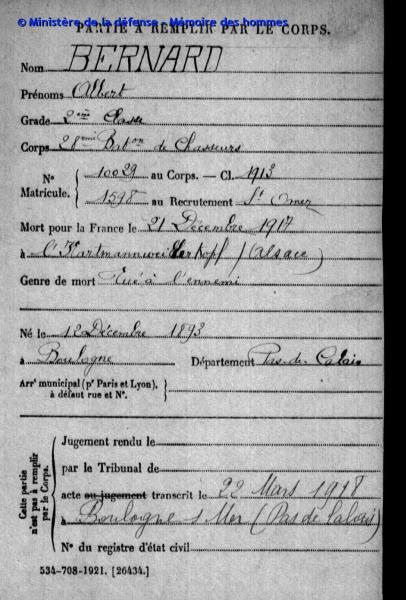 © Ministère de la défense - Mémoire des hommes
PARTIE À REMPLIR PAR LE CORPS.
Nom BERNARD
Prénoms Albert
Grade 2ème Classe
Corps 28ème Baton de Chasseurs
N° Matricule. { 10029 au Corps. — Cl. 1913
1598 au Recrutement St Omer
Mort pour la France le 21 Décembre 1917
à l'Hartmannweillerkopf (Alsace)
Genre de mort Tué à l'ennemi
Né le 12 Décembre 1893
à Boulogne Département Pas-de-Calais
Arrt municipal (pr Paris et Lyon), à défaut rue et N°. {
Cette partie n'est pas à remplir par le Corps.
Jugement rendu le
par le Tribunal de
acte ou jugement transcrit le 22 Mars 1918
à Boulogne s/ Mer (Pas de Calais)
N° du registre d'état civil
534-708-1921. [26434.]